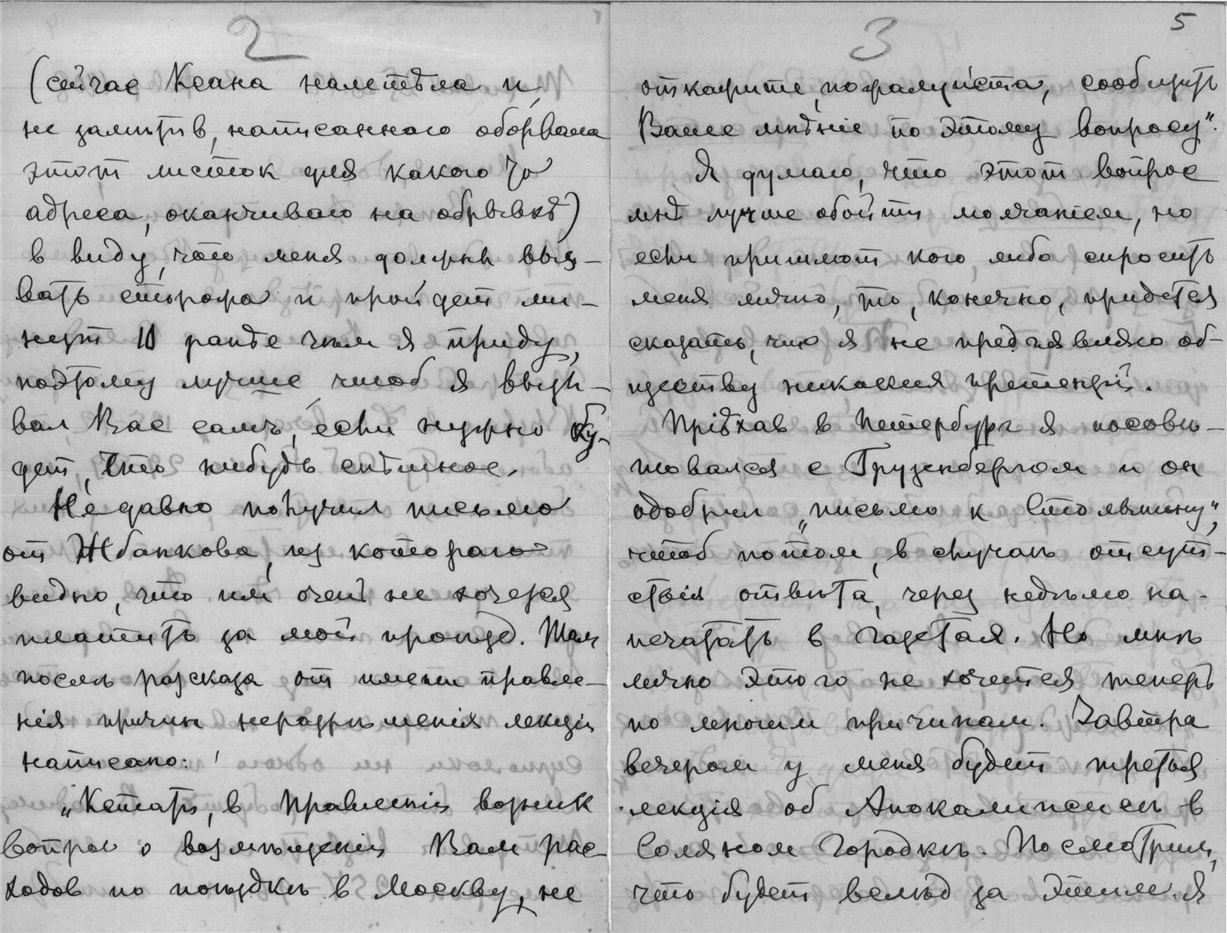 2
(сейчас Ксана налетѣла и,
не замѣтив, написаннаго оборвала
этот листок для какого то
адреса, оканчиваю на обрывкѣ)
в виду, что меня должны выз-
вать сторожа и пройдет ми-
нут 10 ранѣе чѣм я приду,
поэтому лучше чтоб я вызы-
вал Вас самъ, если нужно бу-
дет, что нибудь спѣшное.
Недавно получил письмо
от Жбанкова, из котораго
видно, что им очень не хочется
платить за мой проѣзд. Там
послѣ разсказа от имени правле-
нія причин неразрѣшенія лекціи
написано:
„Кстати, в Правленіи возник
вопрос о возмѣщеніи Вам рас-
ходов по поѣздкѣ в Москву, не
3
5
откажите, пожалуйста, сообщить
Ваше мнѣніе по этому вопросу“.
Я думаю, что этот вопрос
мнѣ лучше обойти молчанием, но
если пришлют кого либо спросить
меня лично, то, конечно, придется
сказать, что я не предъявляю об-
ществу никакия претензій.
Пріѣхав в Петербург я посовѣ-
товался с Грузенбергом и он
одобрил „письмо к Столыпину“,
чтоб потом, в случаѣ отсут-
ствія отвѣта, через недѣлю на-
печатать в газетах. Но мнѣ
лично этого не хочется теперь
по многим причинам. Завтра
вечером у меня будет третья
лекція об Апокалипсисѣ в
Соляном Городкѣ. Посмотрим,
что будет вслѣд за этим. Я